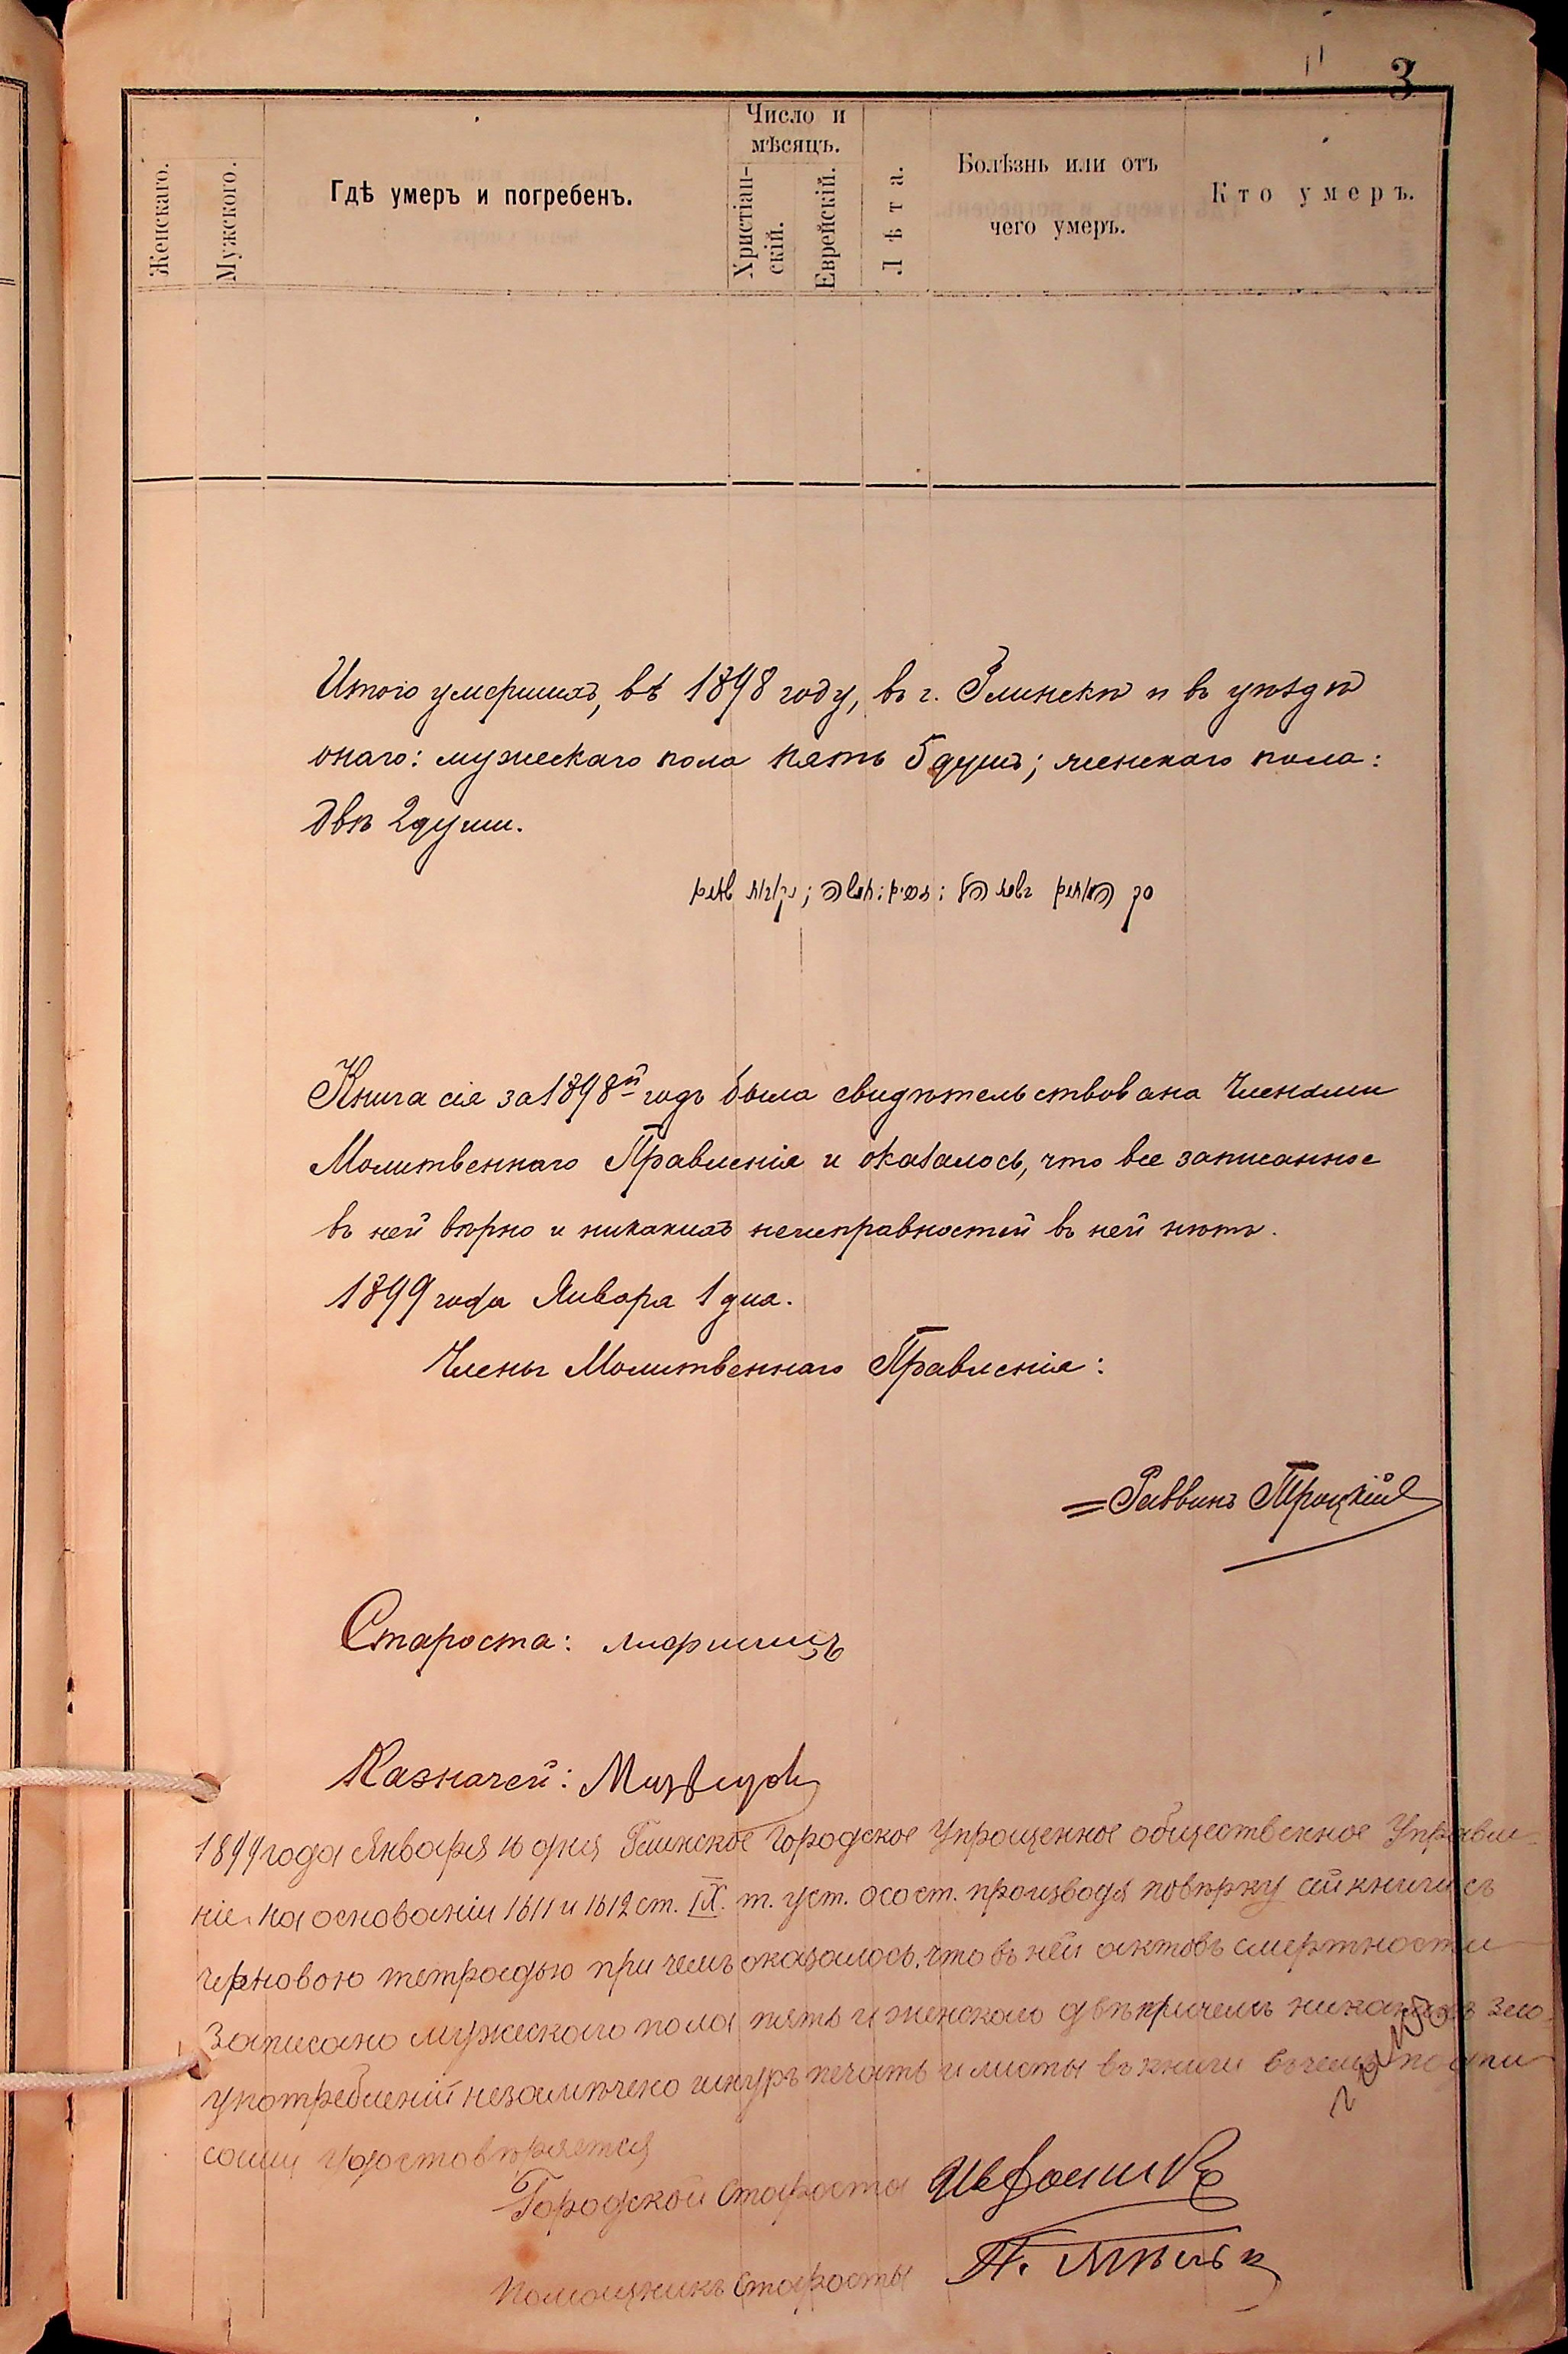 3
Женскаго.
Мужского.
Гдѣ умеръ и погребенъ.
Число и
мѣсяцъ.
Христіан-
скій.
Еврейскій.
Лѣта.
Болѣзнь или отъ
чего умеръ.
Кто умеръ.
Итого умершихъ, въ 1898 году, въ г. Глинскѣ и въ уѣздѣ
онаго: мужескаго пола пять 5 душъ; женскаго пола:
двѣ 2 души.
Книга сія за 1898й годъ была свидѣтельствована Членами
Молитвеннаго Правленія и оказалось, что все записанное
въ ней вѣрно и никакихъ неисправностей въ ней нѣтъ.
1899 года Января 1 дня.
Члены Молитвеннаго Правленія:
Раввинъ Троцкій
Староста: Лифшицъ
Казначей:
1899 года Января 16 дня Глинское Городское Упрощенное общественное Управле-
ніе на основаніи 1611 и 1612 ст. IX. т. уст. о сост. производя повѣрку сей книги съ
черновою тетрадью при чемъ оказалось, что въ ней актовъ смертности
записано мужескаго пола пять и женскаго двѣ причемъ никакихъ зло-
употребленій незамѣчено шнуръ печать и листы въ книги въ чемъ подпи-
сомъ удостовѣряется
Городской Староста
Помощникъ Старосты